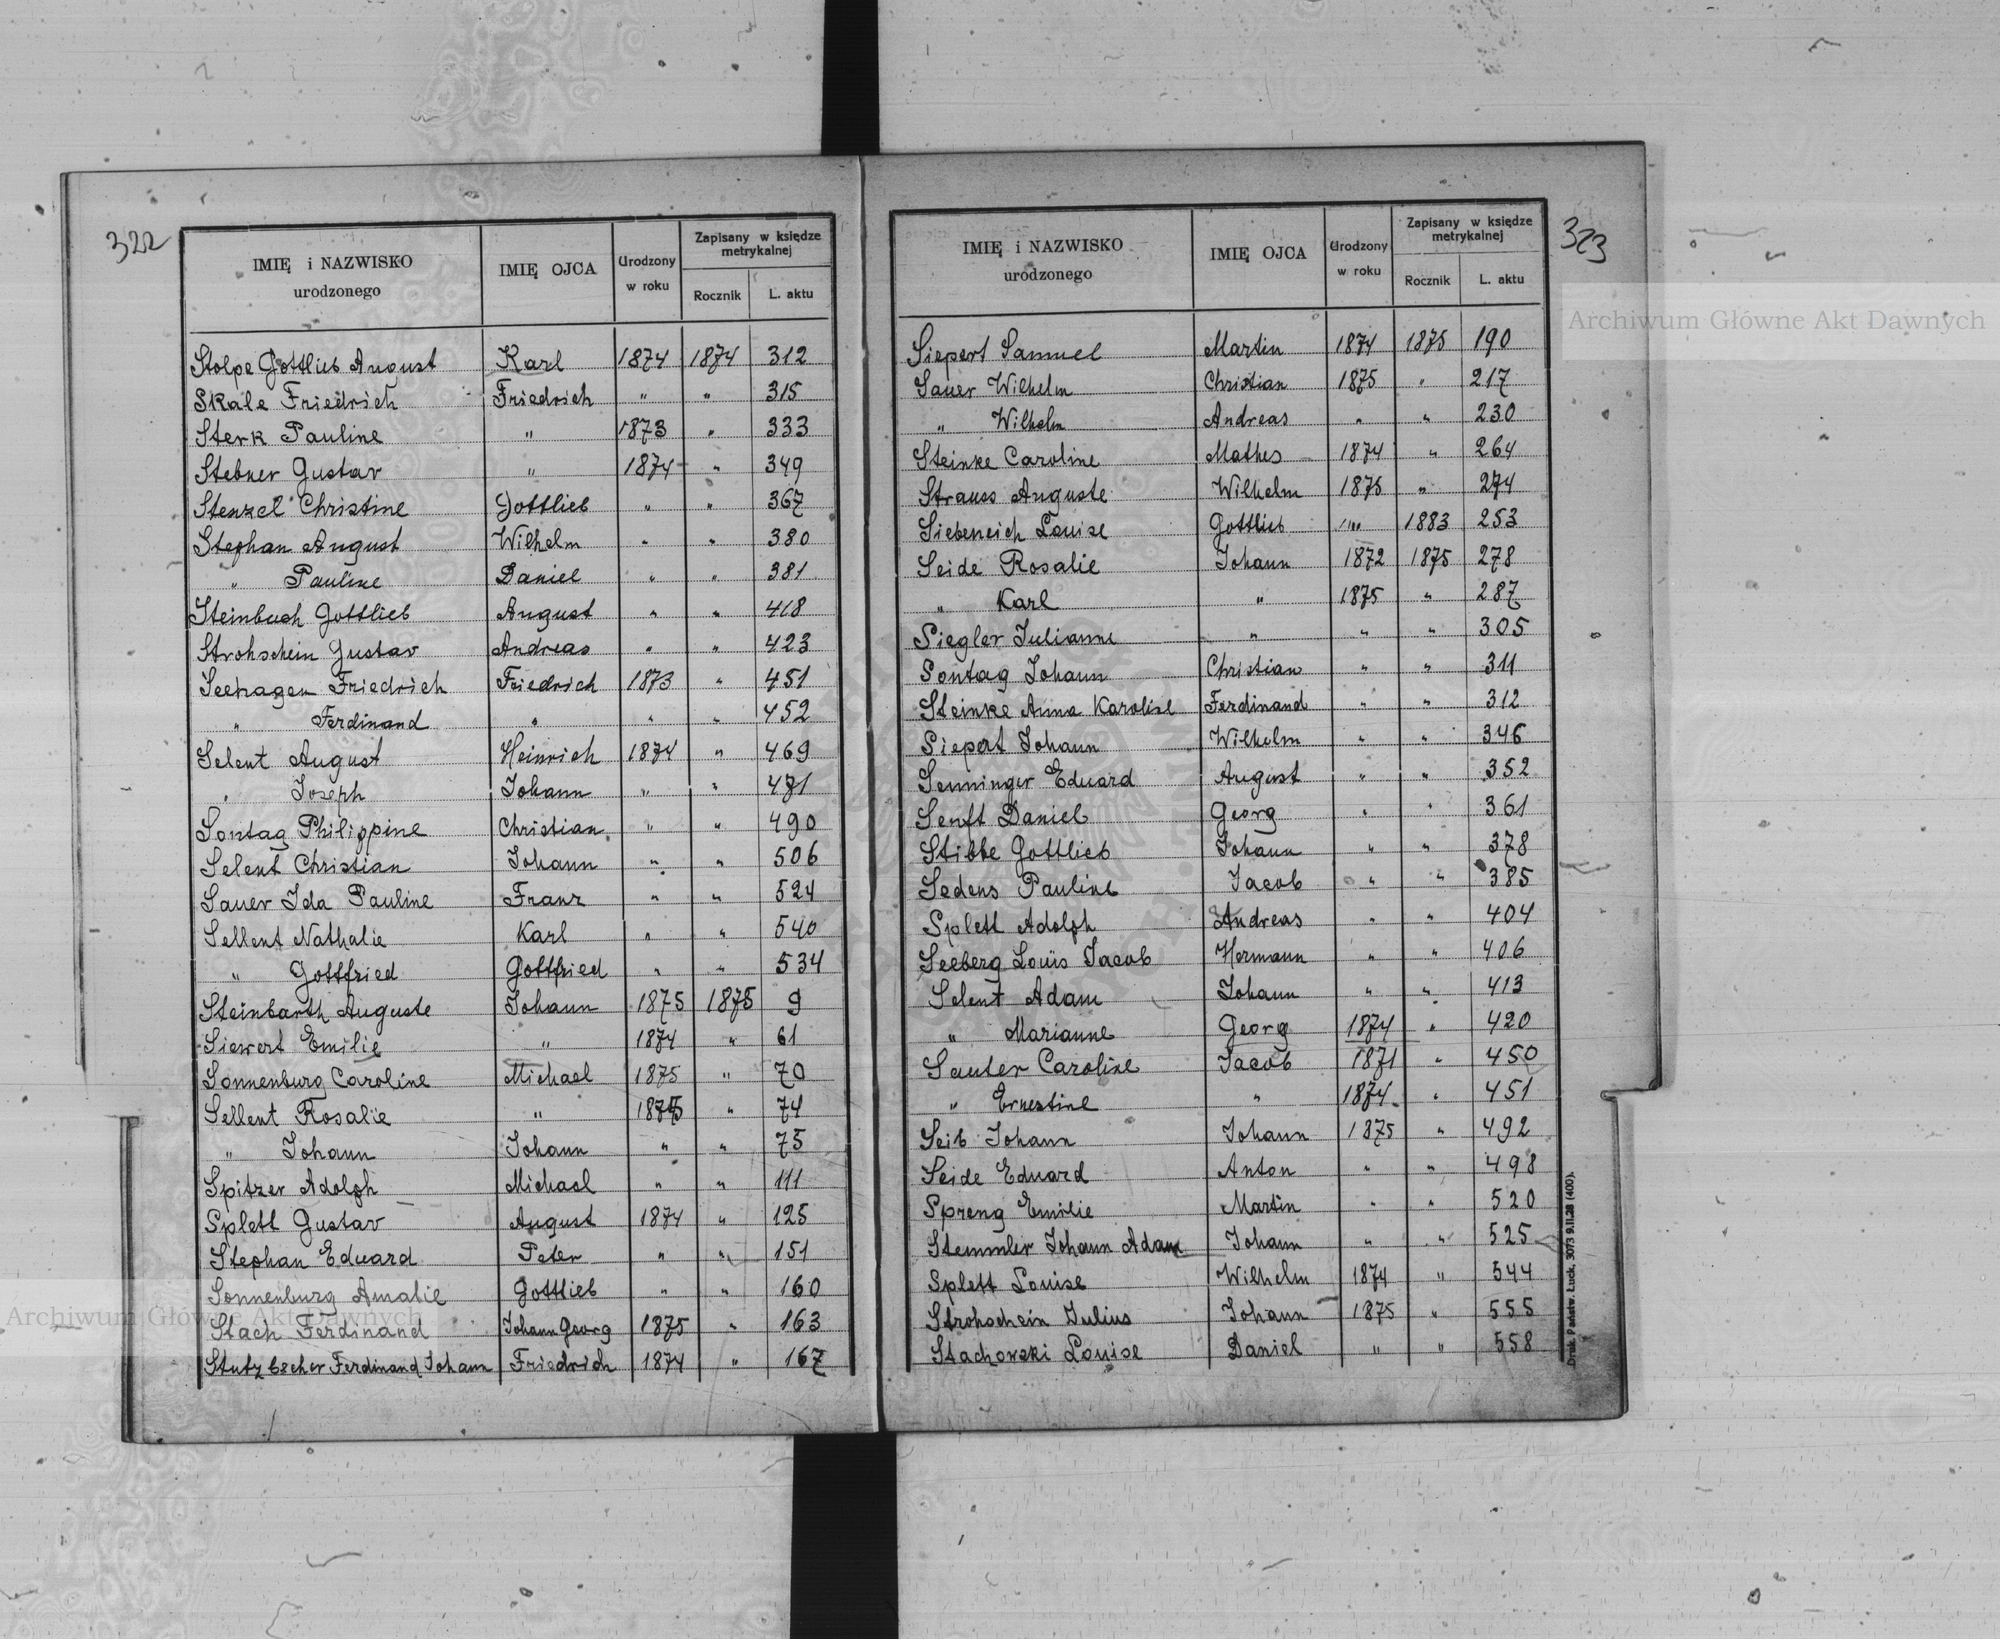 322
IMIĘ i NAZWISKO urodzonego | IMIĘ OJCA | Urodzony w roku | Zapisany w księdze metrykalnej
Rocznik | L. aktu
Stolpe Gottlieb August Karl 1874 1874 312
Skale Friedrich Friedrich " " 315
Sterk Pauline " 1873 " 333
Stebner Gustav " 1874 " 349
Stenzel Christine Gottlieb " " 367
Stephan August Wilhelm " " 380
" Pauline Daniel " " 381
Steinbuch Gottlieb August " " 418
Strohschein Gustav Andreas " " 423
Seehagen Friedrich Friedrich 1873 " 451
" Ferdinand " " " 452
Selent August Heinrich 1874 " 469
" Joseph Johann " " 471
Sontag Philippine Christian " " 490
Selent Christian Johann " " 506
Sauer Ida Pauline Franz " " 524
Sellent Nathalie Karl " " 540
" Gottfried Gottfried " " 534
Steinbarth Auguste Johann 1875 1875 9
Siewert Emilie " 1874 " 61
Sonnenburg Caroline Michael 1875 " 70
Sellent Rosalie " 1875 " 74
" Johann Johann " " 75
Spitzer Adolph Michael " " 111
Splett Gustav August 1874 " 125
Stephan Eduard Peter " " 151
Sonnenburg Amalie Gottlieb " " 160
Stach Ferdinand Johann Georg 1875 " 163
Ferdinand Johann Friedrich 1874 " 167
323
IMIĘ i NAZWISKO urodzonego | IMIĘ OJCA | Urodzony w roku | Zapisany w księdze metrykalnej
Rocznik | L. aktu
Siepert Samuel Martin 1874 1875 190
Sauer Wilhelm Christian 1875 " 217
" Wilhelm Andreas " " 230
Steinke Caroline Mathes 1874 " 264
Strauss Auguste Wilhelm 1875 " 274
Siebeneich Louise Gottlieb " 1883 253
Seide Rosalie Johann 1872 1875 278
" Karl " 1875 " 287
Siegler Julianne " " " 305
Sontag Johann Christian " " 311
Steinke Anna Karoline Ferdinand " " 312
Siepert Johann Wilhelm " " 346
Senninger Eduard August " " 352
Senft Daniel Georg " " 361
Stibbe Gottlieb Johann " " 378
Sedens Pauline Jacob " " 385
Splett Adolph Andreas " " 404
Seeberg Louis Jacob Hermann " " 406
Selent Adam Johann " " 413
" Marianne Georg 1874 " 420
Sauter Caroline Jacob 1871 " 450
" Ernestine " 1874 " 451
Seib Johann Johann 1875 " 492
Seide Eduard Anton " " 498
Spreng Emilie Martin " " 520
Stemmler Johann Adam Johann " " 525
Splett Louise Wilhelm 1874 " 544
Strohschein Julius Johann 1875 " 555
Stachorski Louise Daniel " " 558
Druk. Państw. Łuck. 3073 9.II.28 (400).
Archiwum Główne Akt Dawnych
Archiwum Główne Akt Dawnych